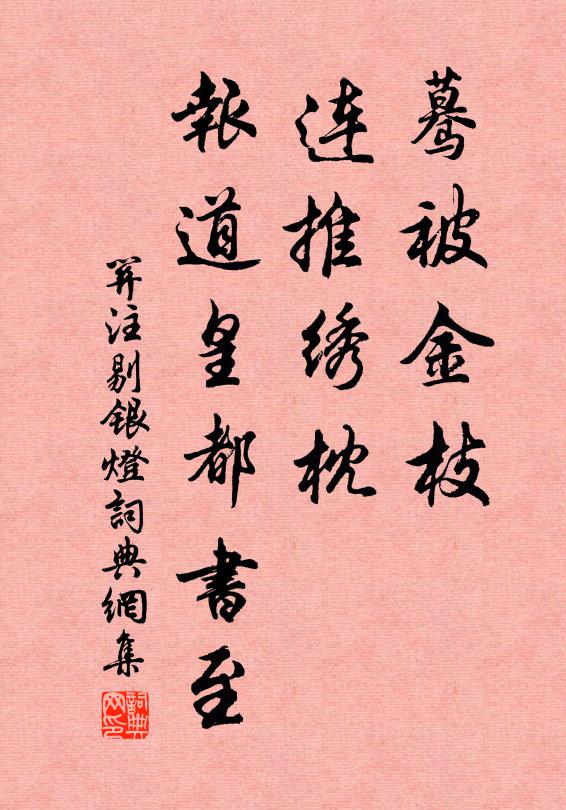 驀被金枝
連推绣枕
報道皇都書至
注剔銀燈詞典網集
詞典網印